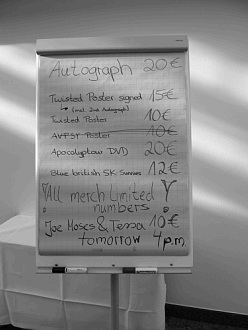 Autograph 20€
Twisted Poster signed 15€
↳ (incl. 2nd Autograph)
Twisted Poster 10€
AVPSY Poster 10€
Apocalyptour DVD 20€
Blue british SK Sunnies 12€
! All merch limited
numbers !
Joe Moses & Tessa 10€
tomorrow 4 p.m